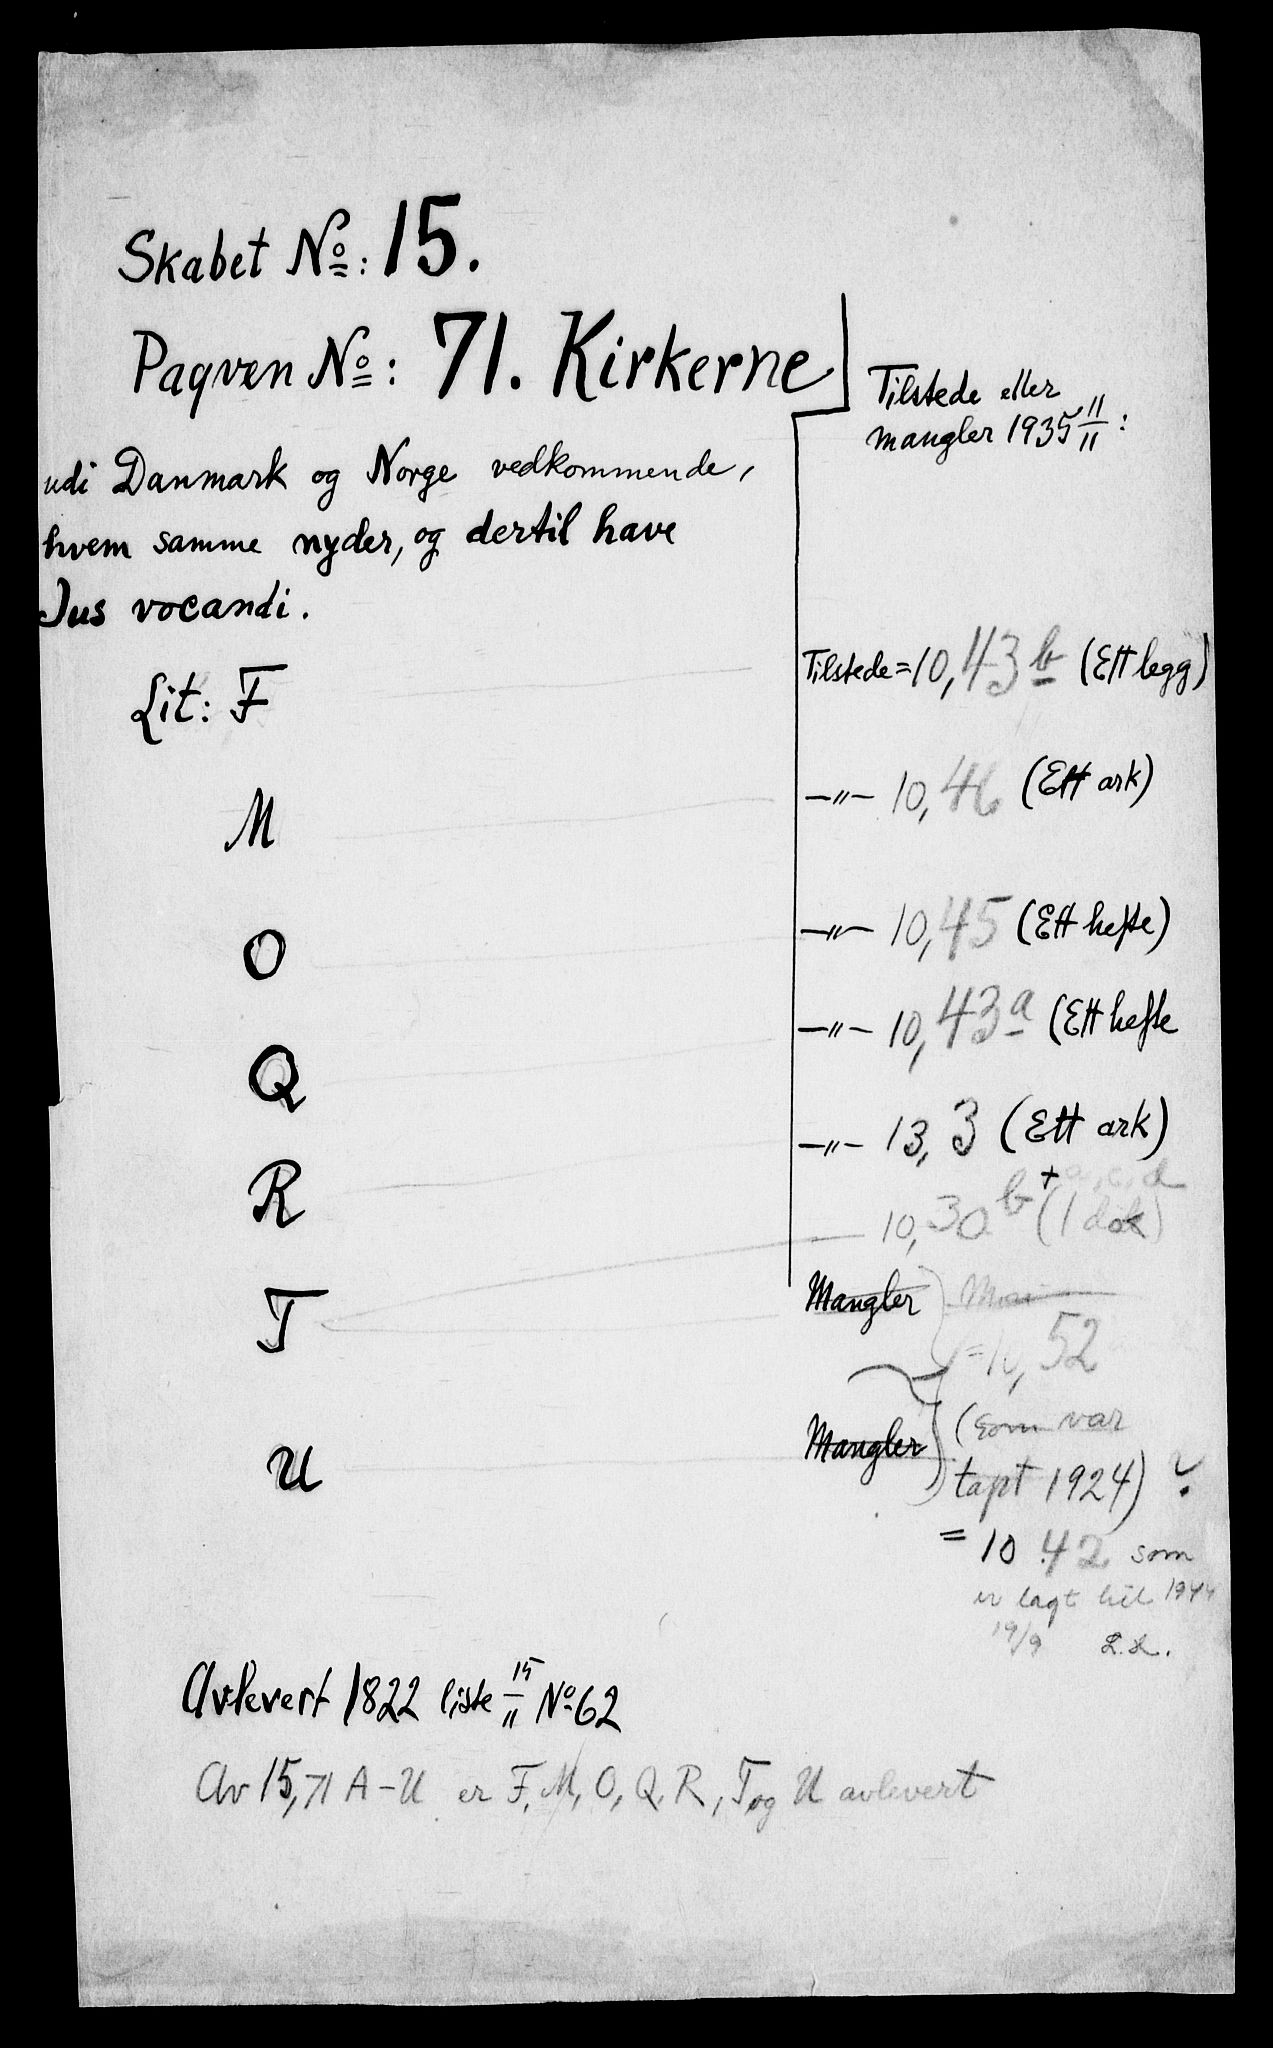 Skabet No: 15.
Paqven No: 71. Kirkerne
udi Danmark og Norge vedkommende,
hvem samme nyder, og dertil have
Jus vocandi.
Tilstede eller
mangler 1935 11/11:
Lit: F
Tilstede = 10,43 b (Ett legg)
M
—〃— 10,46 (Ett ark)
O
—〃— 10,45 (Ett hefte)
Q
—〃— 10,43 a (Ett hefte
R
—〃— 13,3 (Ett ark)
+ a, c, d
10,30 b (1 dok)
T
Mangler
= 10,52
U
Mangler
(som var
tapt 1924) ?
= 10.42 som
er lagt hit 1944
19/9 L.L.
Avlevert 1822 liste 15/11 No 62
Av 15,71 A-U er F, M, O, Q, R, T og U avlevert